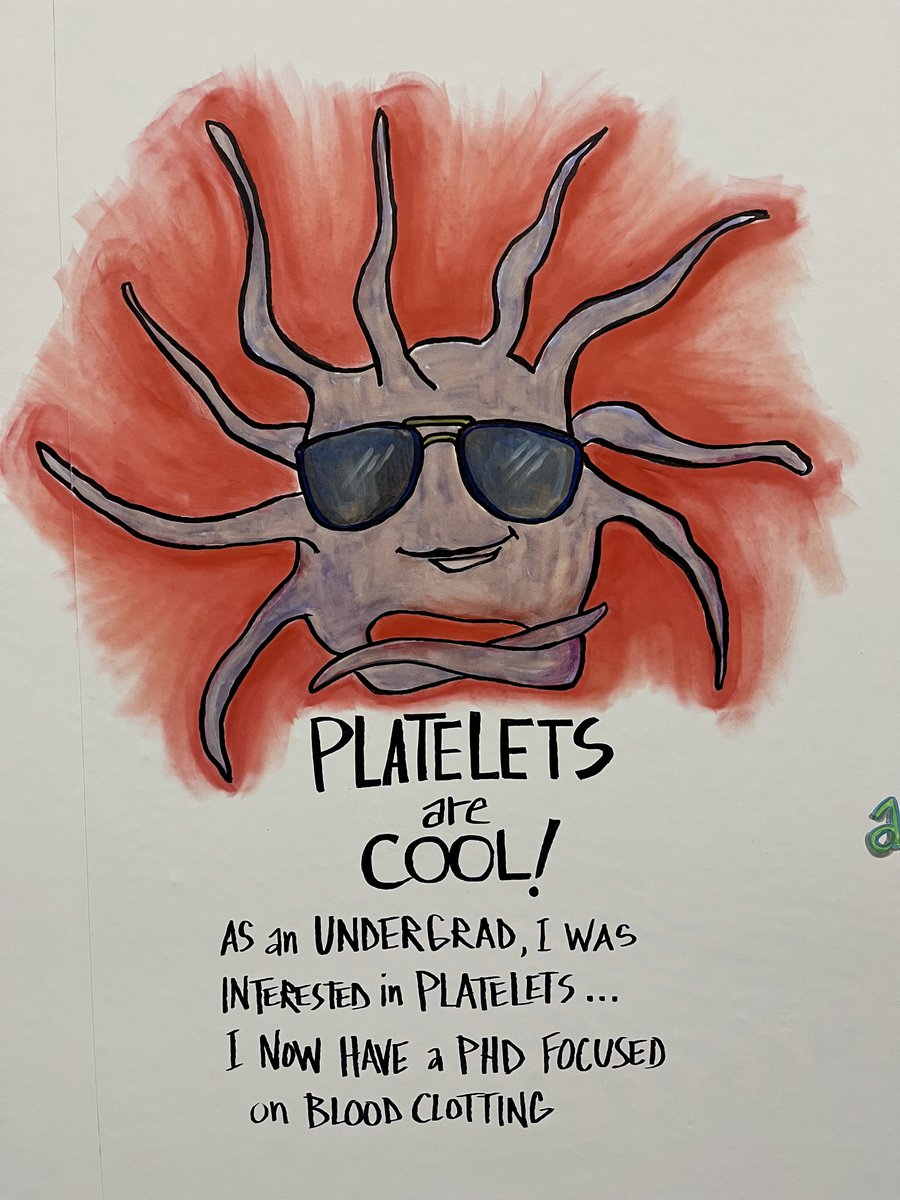 PLATELETS
are
COOL!
AS an UNDERGRAD, I WAS
INTERESTED in PLATELETS...
I NOW HAVE a PHD FOCUSED
on BLOOD CLOTTING